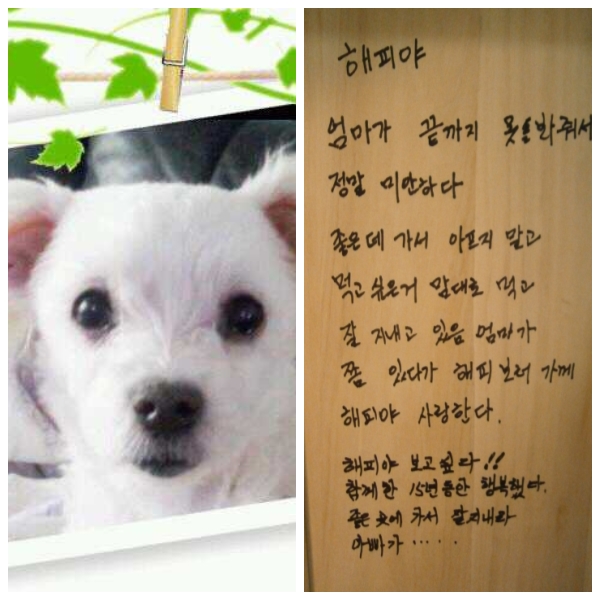 해피야
엄마가 끝까지 못 봐줘서
정말 미안하다
좋은데 가서 아프지 말고
먹고 싶은거 맘대로 먹고
잘 지내고 있음 엄마가
쫌 있다가 해피 보러 가께
해피야 사랑한다.
해피야 보고 싶다!!
함께한 15년 동안 행복했다.
좋은 곳에 가서 잘지내라
아빠가 ·····